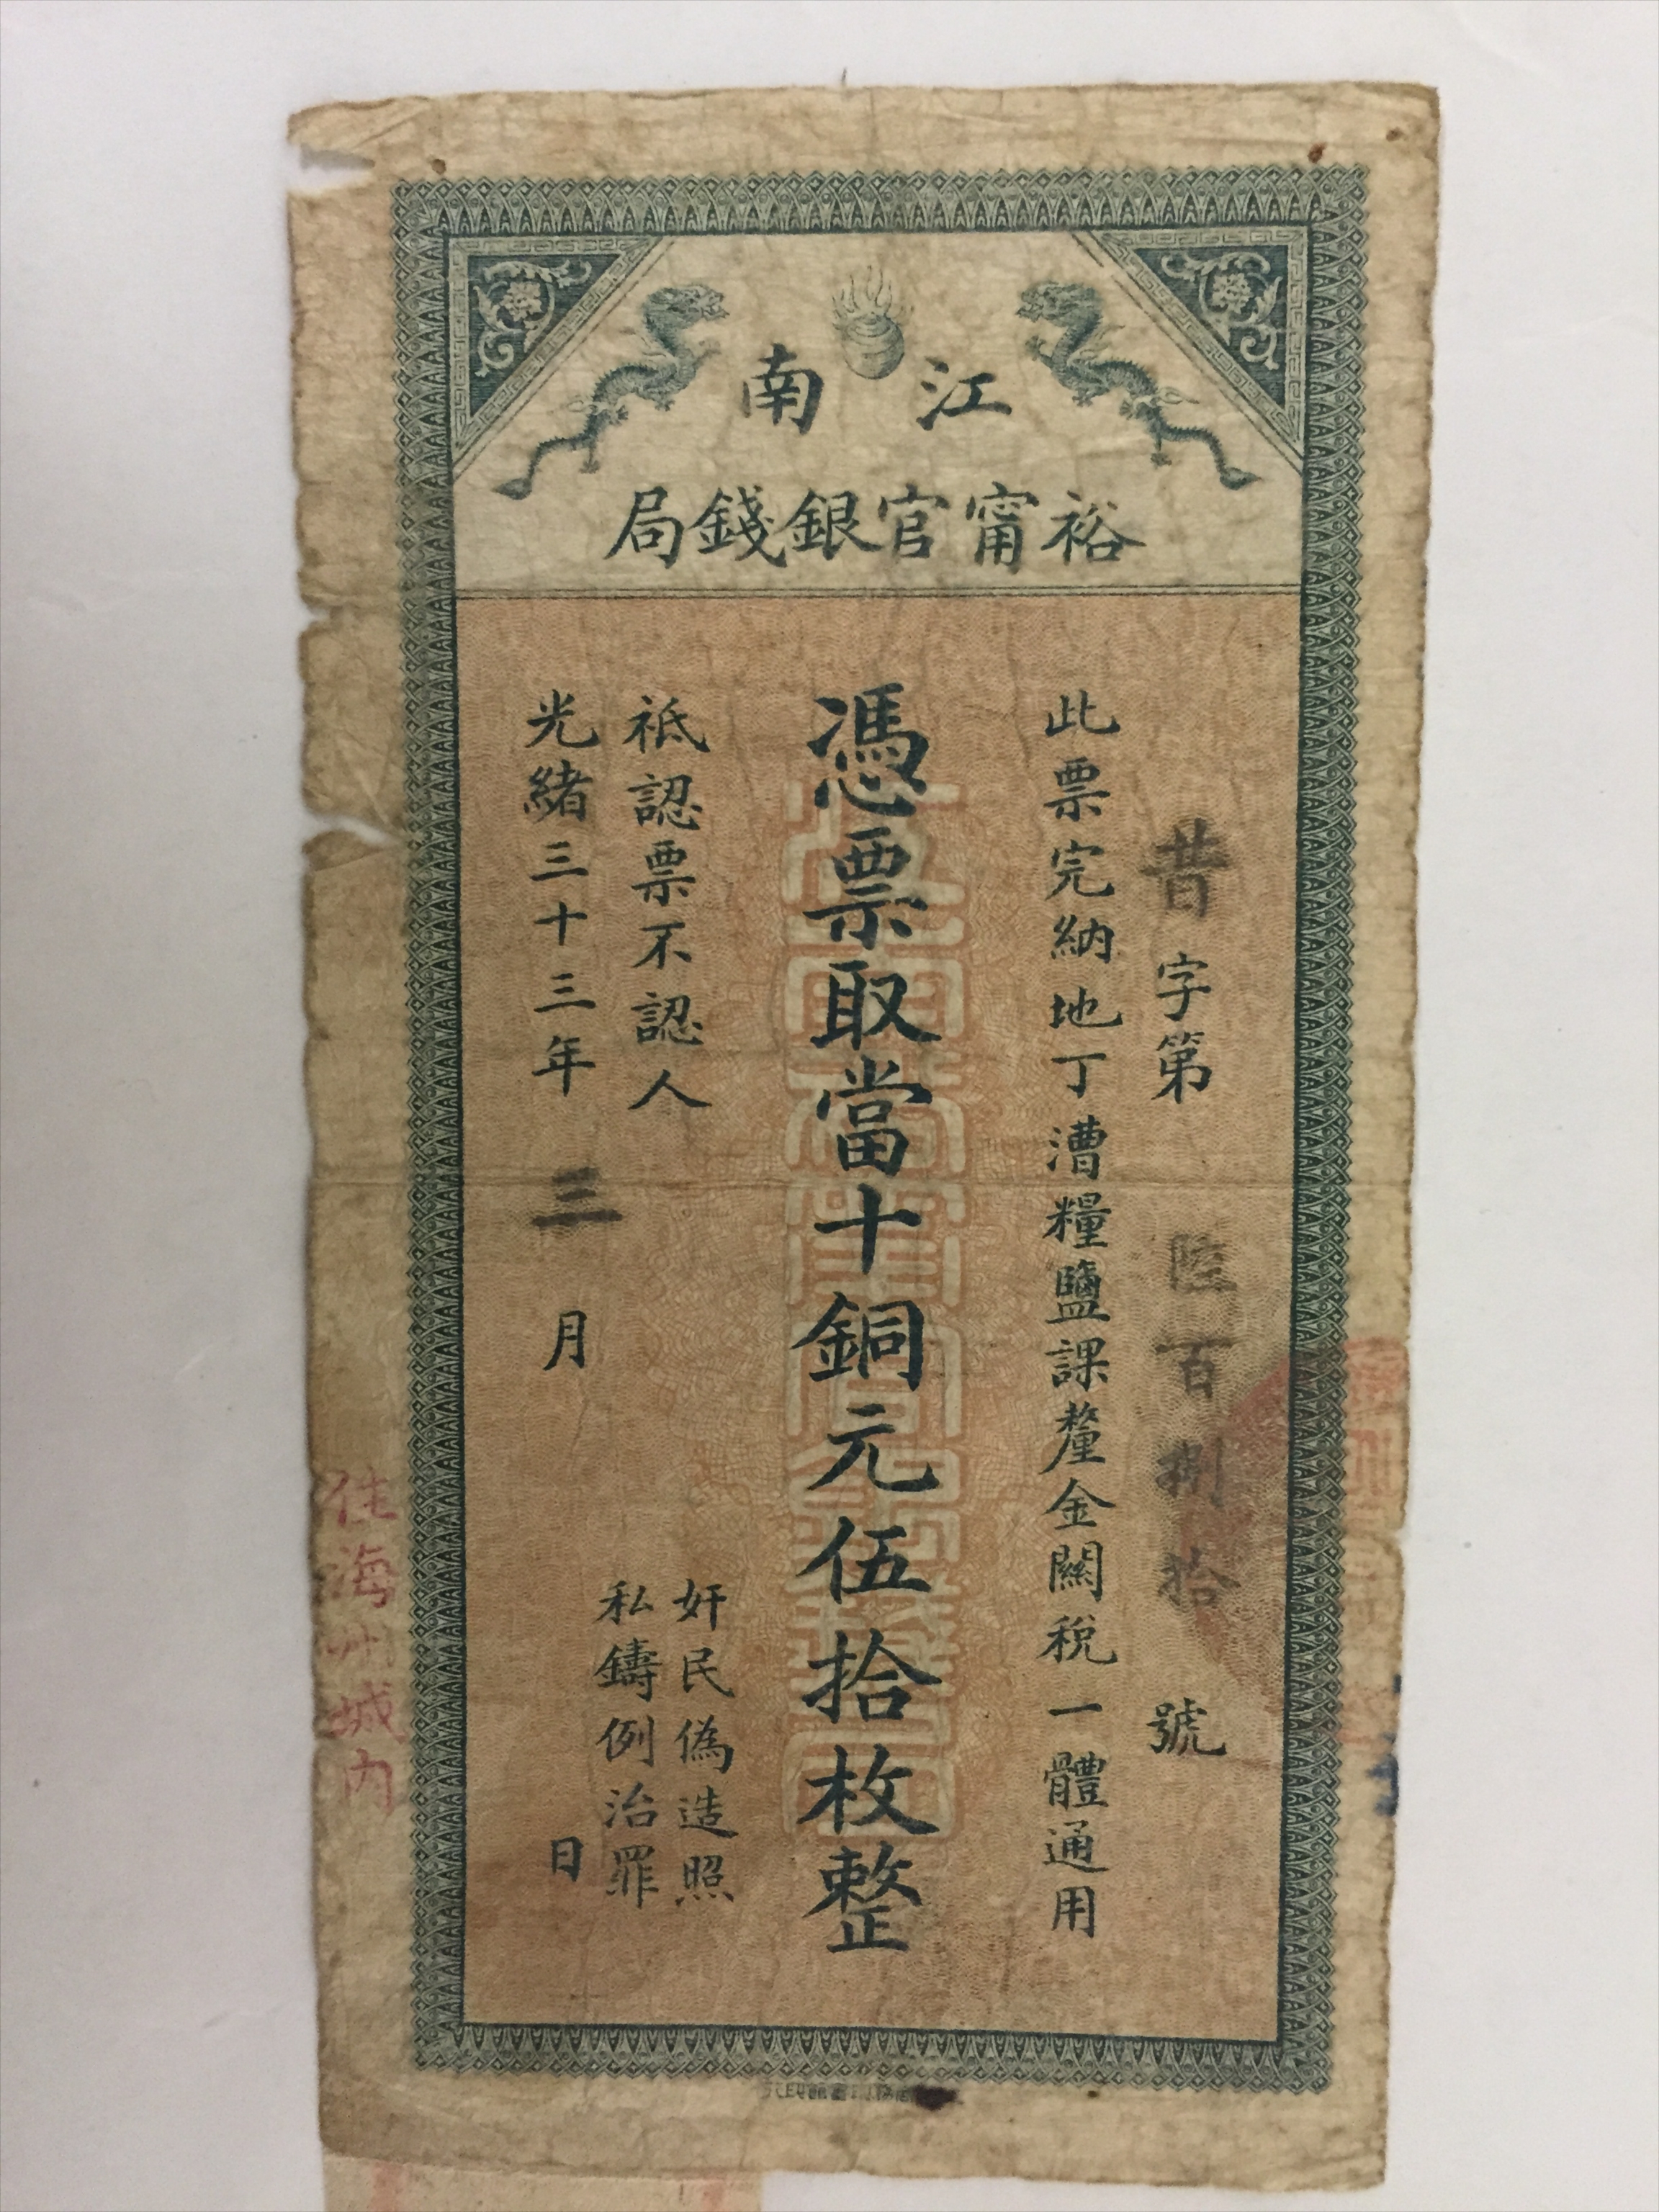 江南
裕甯官銀錢局
昔字第陸百捌拾號
此票完納地丁漕糧鹽課釐金關稅一體通用
憑票取當十銅元伍拾枚整
奸民偽造照
私鑄例治罪
祗認票不認人
光緒三十三年三月日
住海州城內